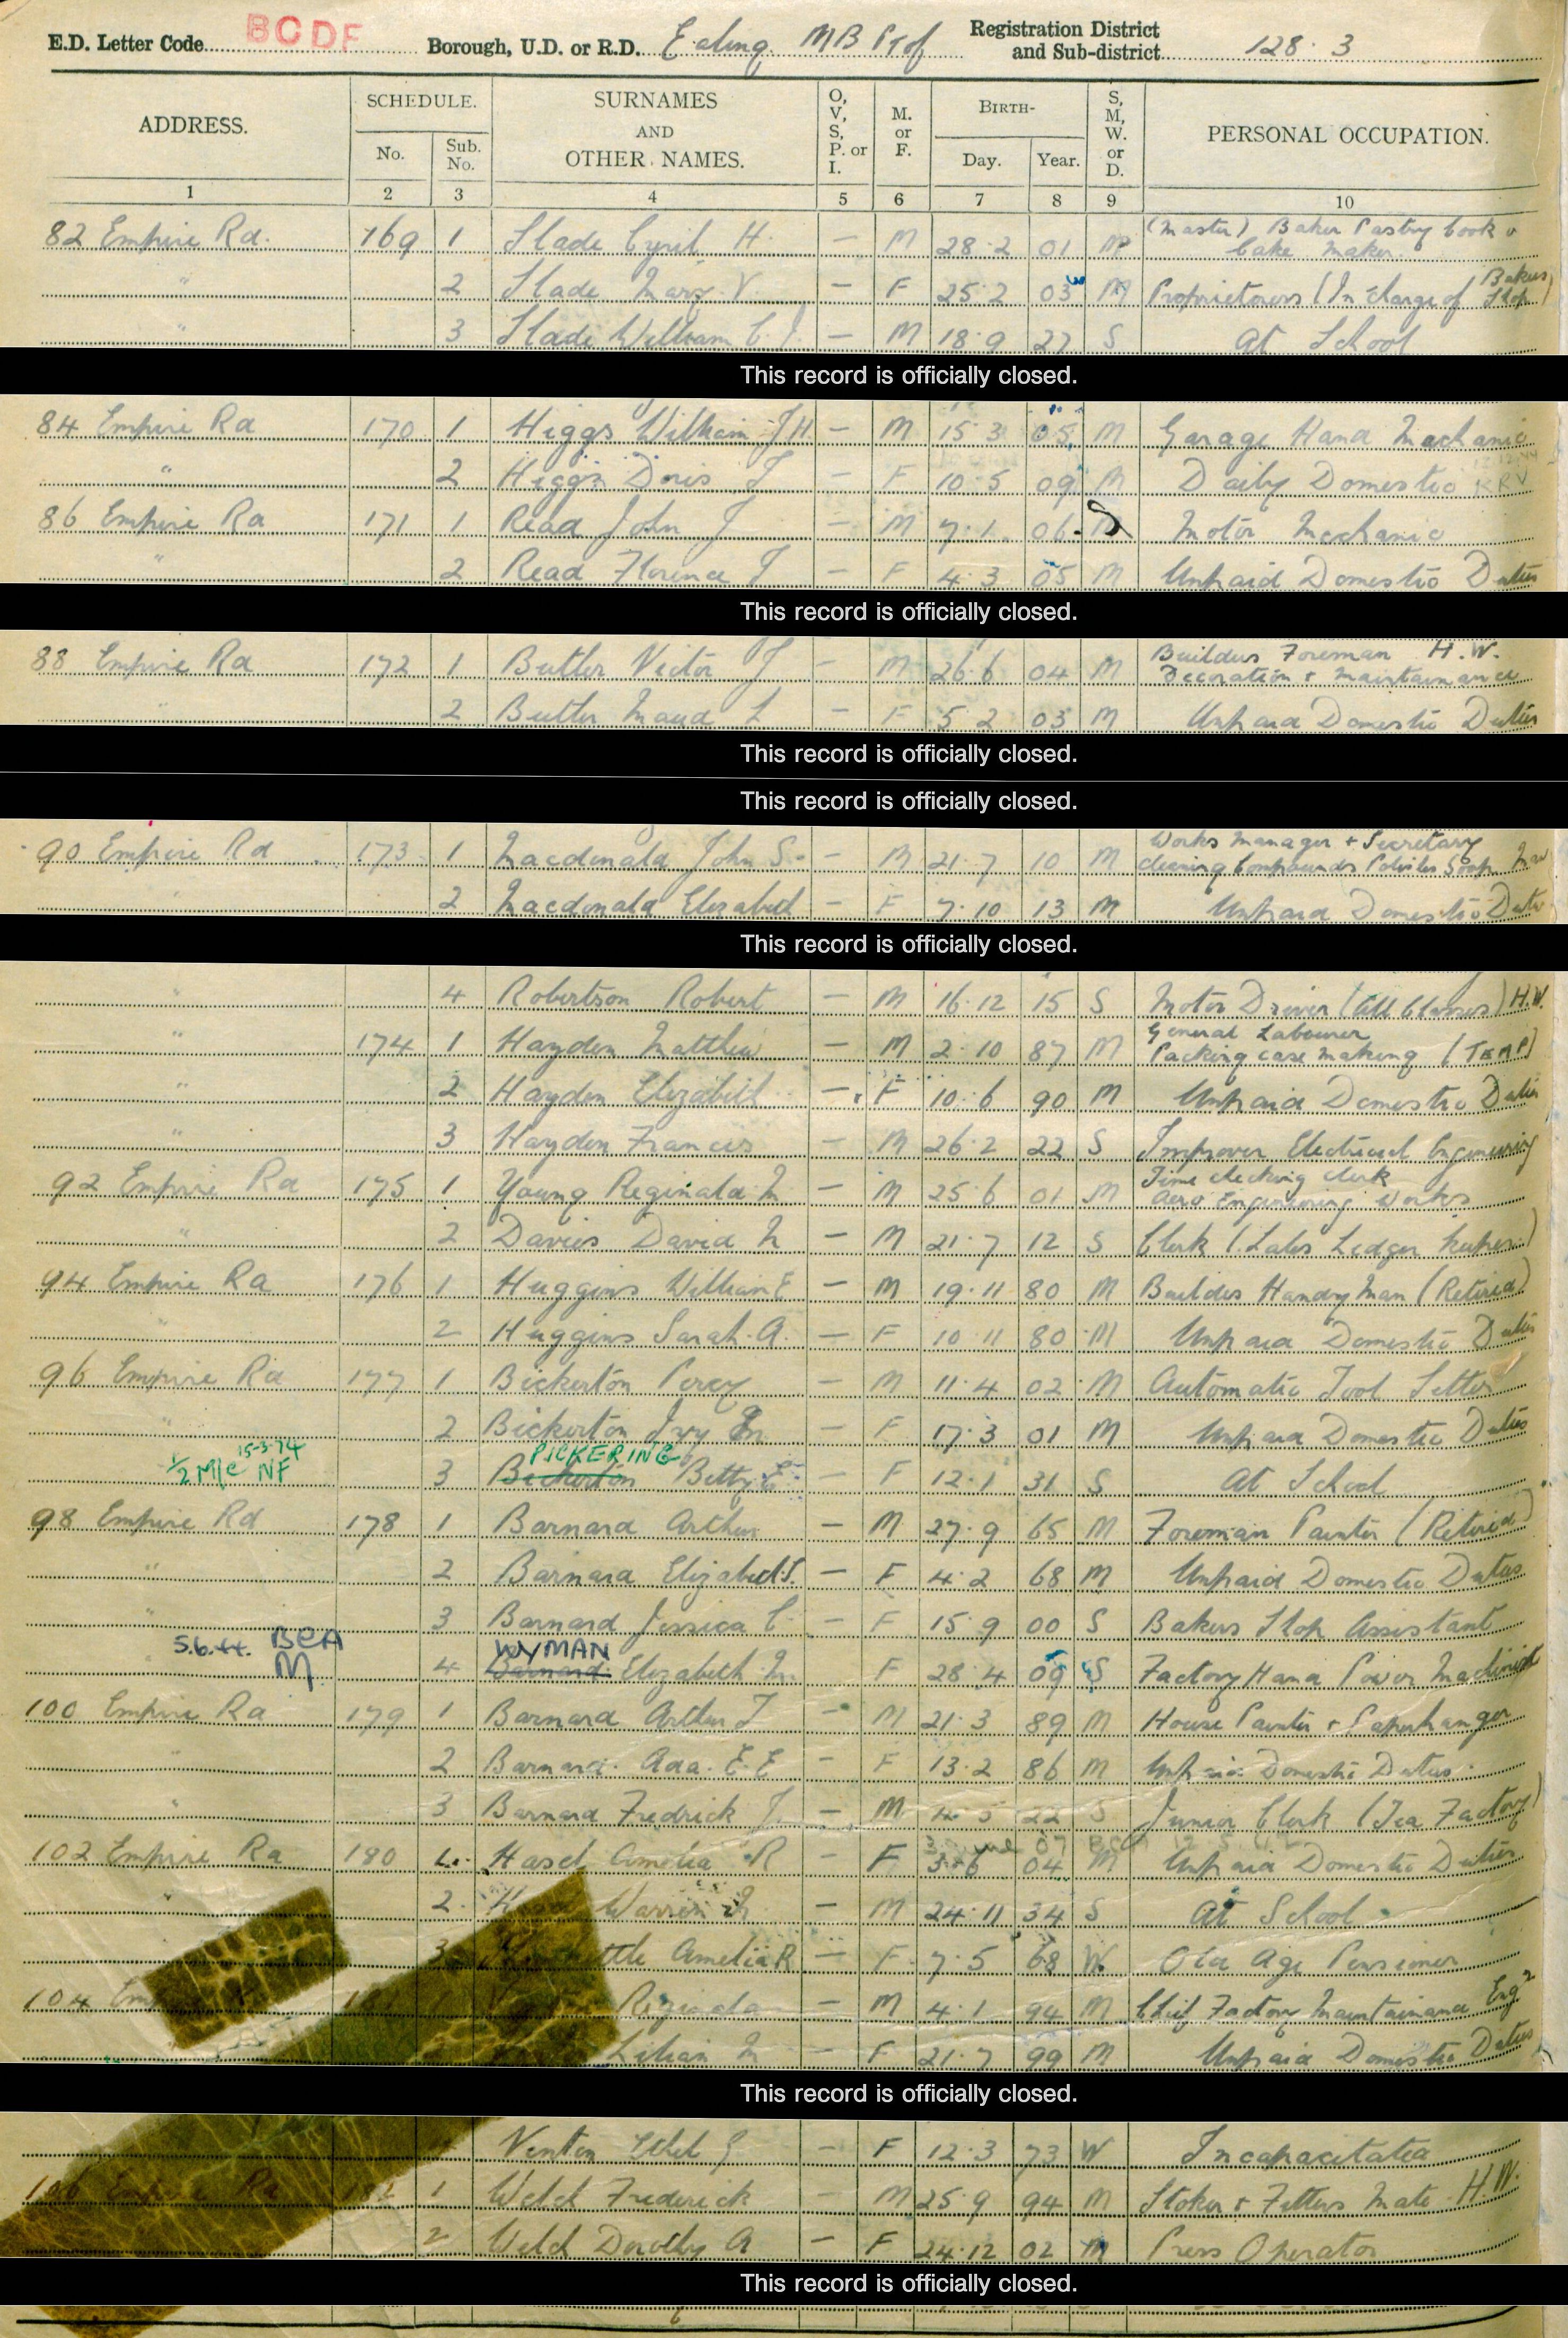 E.D. Letter Code BCDF Borough, U.D. or R.D. Ealing MB Registration District and Sub-district 128. 3
ADDRESS. SCHEDULE. SURNAMES AND OTHER NAMES. O, V, S, P. or I. M. or F. BIRTH- S, M, W. or D. PERSONAL OCCUPATION.
No. Sub. No. Day. Year.
1 2 3 4 5 6 7 8 9 10
82 Empire Rd. 169 1 Slade Cyril H. — M 28.2 01 M (Master) Baker Pastry Cook & Cake Maker.
" 2 Slade Mary V. — F 25.2 03 M Proprietoress (In charge of Bakers Shop)
" 3 Slade William C. J. — M 18.9 27 S At School
This record is officially closed.
84 Empire Rd 170 1 Higgs William J H — M 15 3 05 M Garage Hand Mechanic
" 2 Higgs Doris — F 10.5 09 M Daily Domestic KRV
86 Empire Rd 171 1 Read John J — M 7.1. 06 Motor Mechanic
" 2 Read Florence — F 4.3 05 M Unpaid Domestic Duties
This record is officially closed.
88 Empire Rd 172 1 Butler Victor J — M 26.6 04 M Builders Foreman H.W. Decoration & Maintainance
" 2 Butler Maud L — F 5 2 03 M Unpaid Domestic Duties
This record is officially closed.
This record is officially closed.
90 Empire Rd 173 1 Macdonald John S. — M 21.7 10 M Works Manager + Secretary Cleaning Compounds Polishes Soap
2 Macdonald Elizabeth — F 7.10 13 M Unpaid Domestic Duties
This record is officially closed.
" 4 Robertson Robert — M 16.12 15 S Motor Driver (All Classes) H.W.
" 174 1 Hayden Matthew — M 2.10 87 M General Labourer Packing case making (TEMP)
" 2 Hayden Elizabeth — F 10.6 90 M Unpaid Domestic Duties
" 3 Hayden Francis — M 26.2 22 S Improver Electrical Engineering
92 Empire Rd 175 1 Young Reginald M — M 25.6 01 M Time checking clerk Aero Engineering Works
" 2 Davies David M — M 21.7 12 S Clerk (Sales Ledger keeper)
94 Empire Rd 176 1 Huggins William E — M 19.11 80 M Builders Handy Man (Retired)
" 2 Huggins Sarah A. — F 10 11 80 M Unpaid Domestic Duties
96 Empire Rd 177 1 Bickerton Percy — M 11.4 02 M Automatic Tool Setter
" 2 Bickerton Ivy — F 17.3 01 M Unpaid Domestic Duties
15-3-74 PICKERING
1/2 M/C NF 3 Bickerton Betty E — F 12.1 31 S At School
98 Empire Rd 178 1 Barnard Arthur — M 27.9 65 M Foreman Painter (Retired)
" 2 Barnard Elizabeth S. — F 4.2 68 M Unpaid Domestic Duties
" 3 Barnard Jessica C — F 15.9 00 S Bakers Shop Assistant
5.6.44. BCA M WYMAN
" 4 Barnard Elizabeth M. F 28.4 09 S Factory Hand Power Machinist
100 Empire Rd 179 1 Barnard Arthur J — M 21.3 89 M House Painter + Paperhanger
" 2 Barnard Ada. E. E — F 13.2 86 M Unpaid Domestic Duties
" 3 Barnard Fredrick J. — M 4.5 22 S Junior Clerk (Tea Factory)
102 Empire Rd 180 1. Hasel Amelia R — F 3.6 04 M Unpaid Domestic Duties
" 2. Warren — M 24.11 34 S At School
3 Amelia R — F 7.5 68 W Old Age Pensioner
104 Reginald — M 4.1 94 M Chief Factory Maintainance Engr
Lilian M — F 21.7 99 M Unpaid Domestic Duties
This record is officially closed.
Venton Ethel — F 12.3 73 W Incapacitated
106 Empire Rd 1 Welch Frederick — M 25.9 94 M Stoker & Fitters Mate H.W.
2 Welch Dorothy A — F 24.12 02 M Press Operator
This record is officially closed.